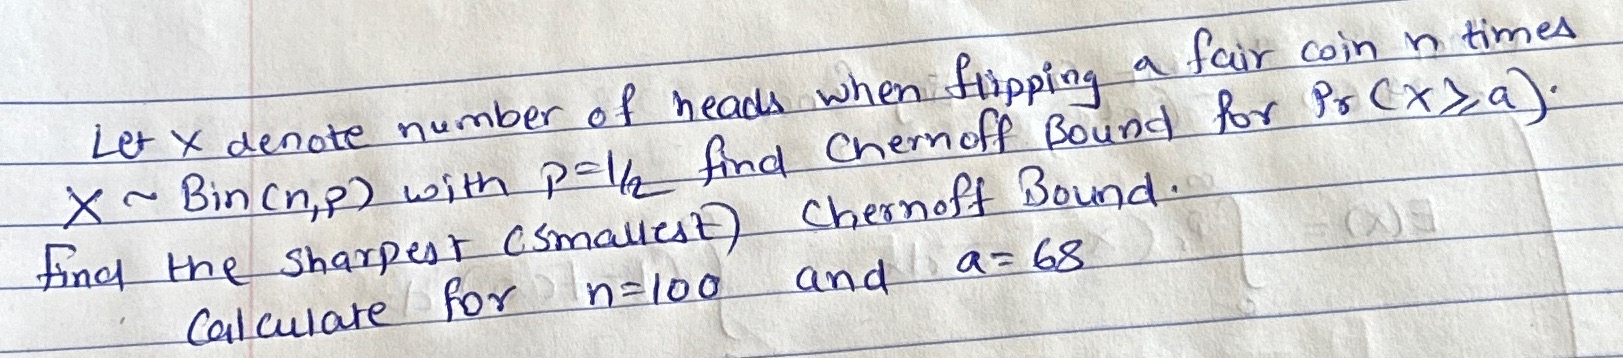 Let X denote number of heads when flipping a fair coin n times
X ~ Bin(n,p) with p=1/2 find Chernoff Bound for Pr(X≥a).
find the sharpest (smallest) Chernoff Bound.
Calculate for n=100 and a=68